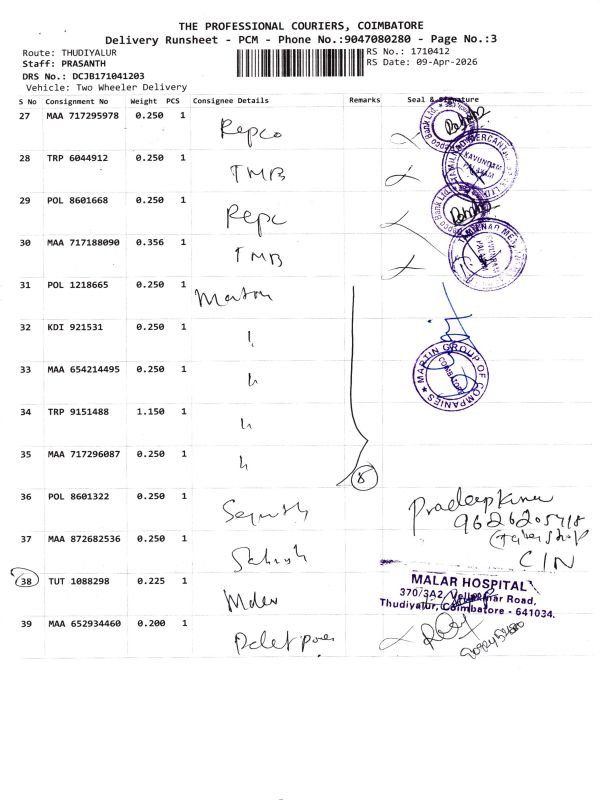 THE PROFESSIONAL COURIERS, COIMBATORE
Delivery Runsheet - PCM - Phone No.:9047080280 - Page No.:3
Route: THUDIYALUR RS No.: 1710412
Staff: PRASANTH RS Date: 09-Apr-2026
DRS No.: DCJB171041203
Vehicle: Two Wheeler Delivery
S No Consignment No Weight PCS Consignee Details Remarks Seal & Signature
27 MAA 717295978 0.250 1 Repco
28 TRP 6044912 0.250 1 TMB
29 POL 8601668 0.250 1 Repc
30 MAA 717188090 0.356 1 TMB
31 POL 1218665 0.250 1
32 KDI 921531 0.250 1
MARTIN GROUP OF COMPANIES
COIMBATORE
33 MAA 654214495 0.250 1
34 TRP 9151488 1.150 1
35 MAA 717296087 0.250 1
36 POL 8601322 0.250 1
37 MAA 872682536 0.250 1
CIN
38 TUT 1088298 0.225 1
MALAR HOSPITAL
370/3A2, Road,
Thudiyalur, Coimbatore - 641034.
39 MAA 652934460 0.200 1